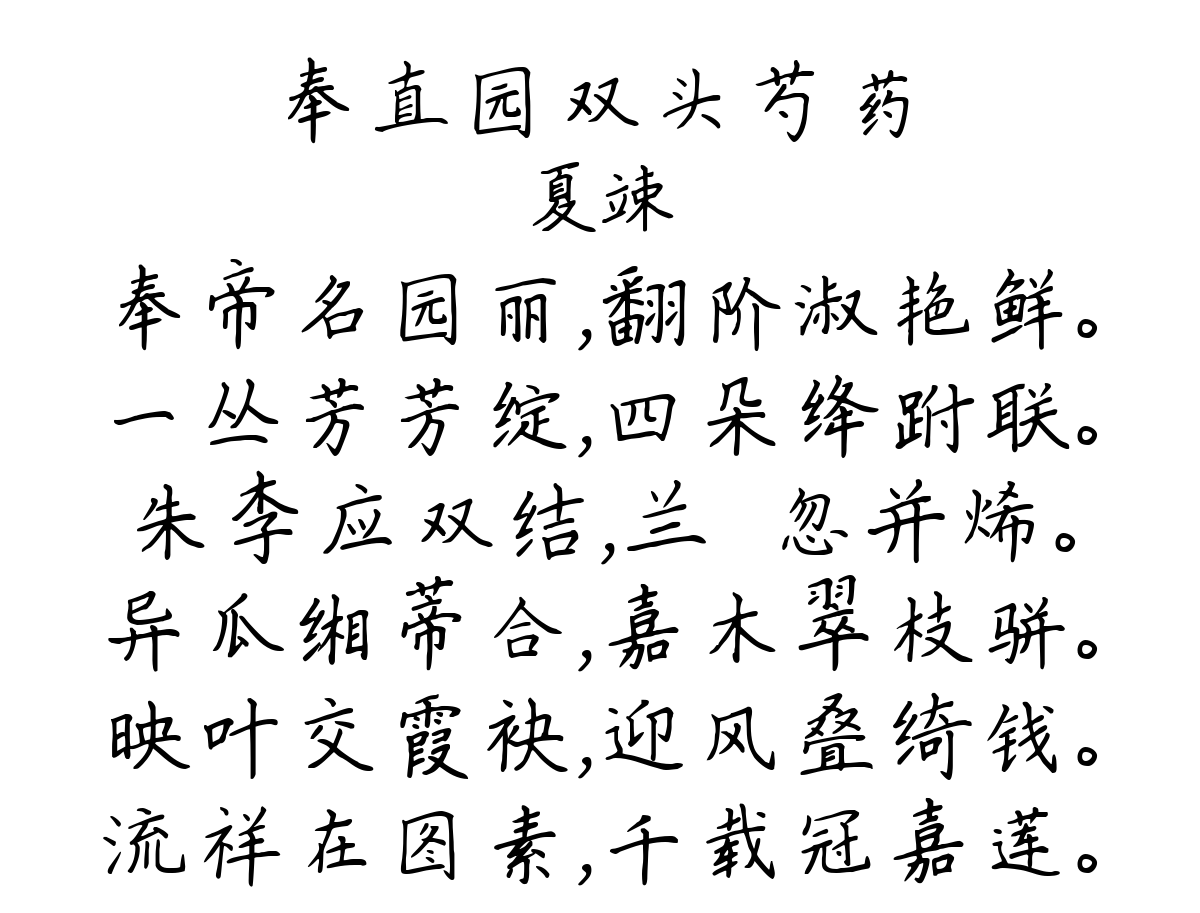 奉直园双头芍药
夏竦
奉帝名园丽,翻阶淑艳鲜。
一丛芳芳绽,四朵绛跗联。
朱李应双结,兰 忽并烯。
异瓜缃蒂合,嘉木翠枝骈。
映叶交霞袂,迎风叠绮钱。
流祥在图素,千载冠嘉莲。